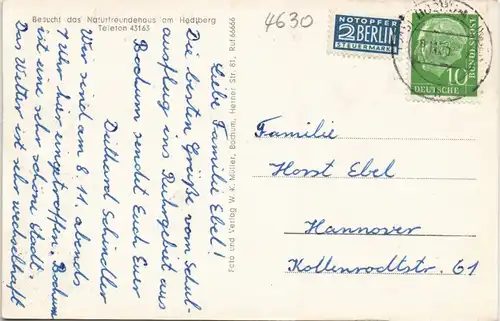 Besucht das Naturfreundehaus am Hedtberg
Telefon 43163
4630
NOTOPFER
2 BERLIN
STEUERMARKE
10
DEUTSCHE
BUNDESPOST
Liebe Familie Ebel!
Die besten Grüße vom Schul-
ausflug ins Ruhrgebiet aus
Bochum sendet Euch Euer
Diethard Schindler
Wir sind am 8. 11. abends
hier eingetroffen. Bochum
ist eine sehr schöne Stadt.
Das Wetter ist sehr wechselhaft
Foto und Verlag W. K. Müller, Bochum, Herner Str. 81, Ruf 66666
Familie
Horst Ebel
Hannover
Kollenrodtstr. 61